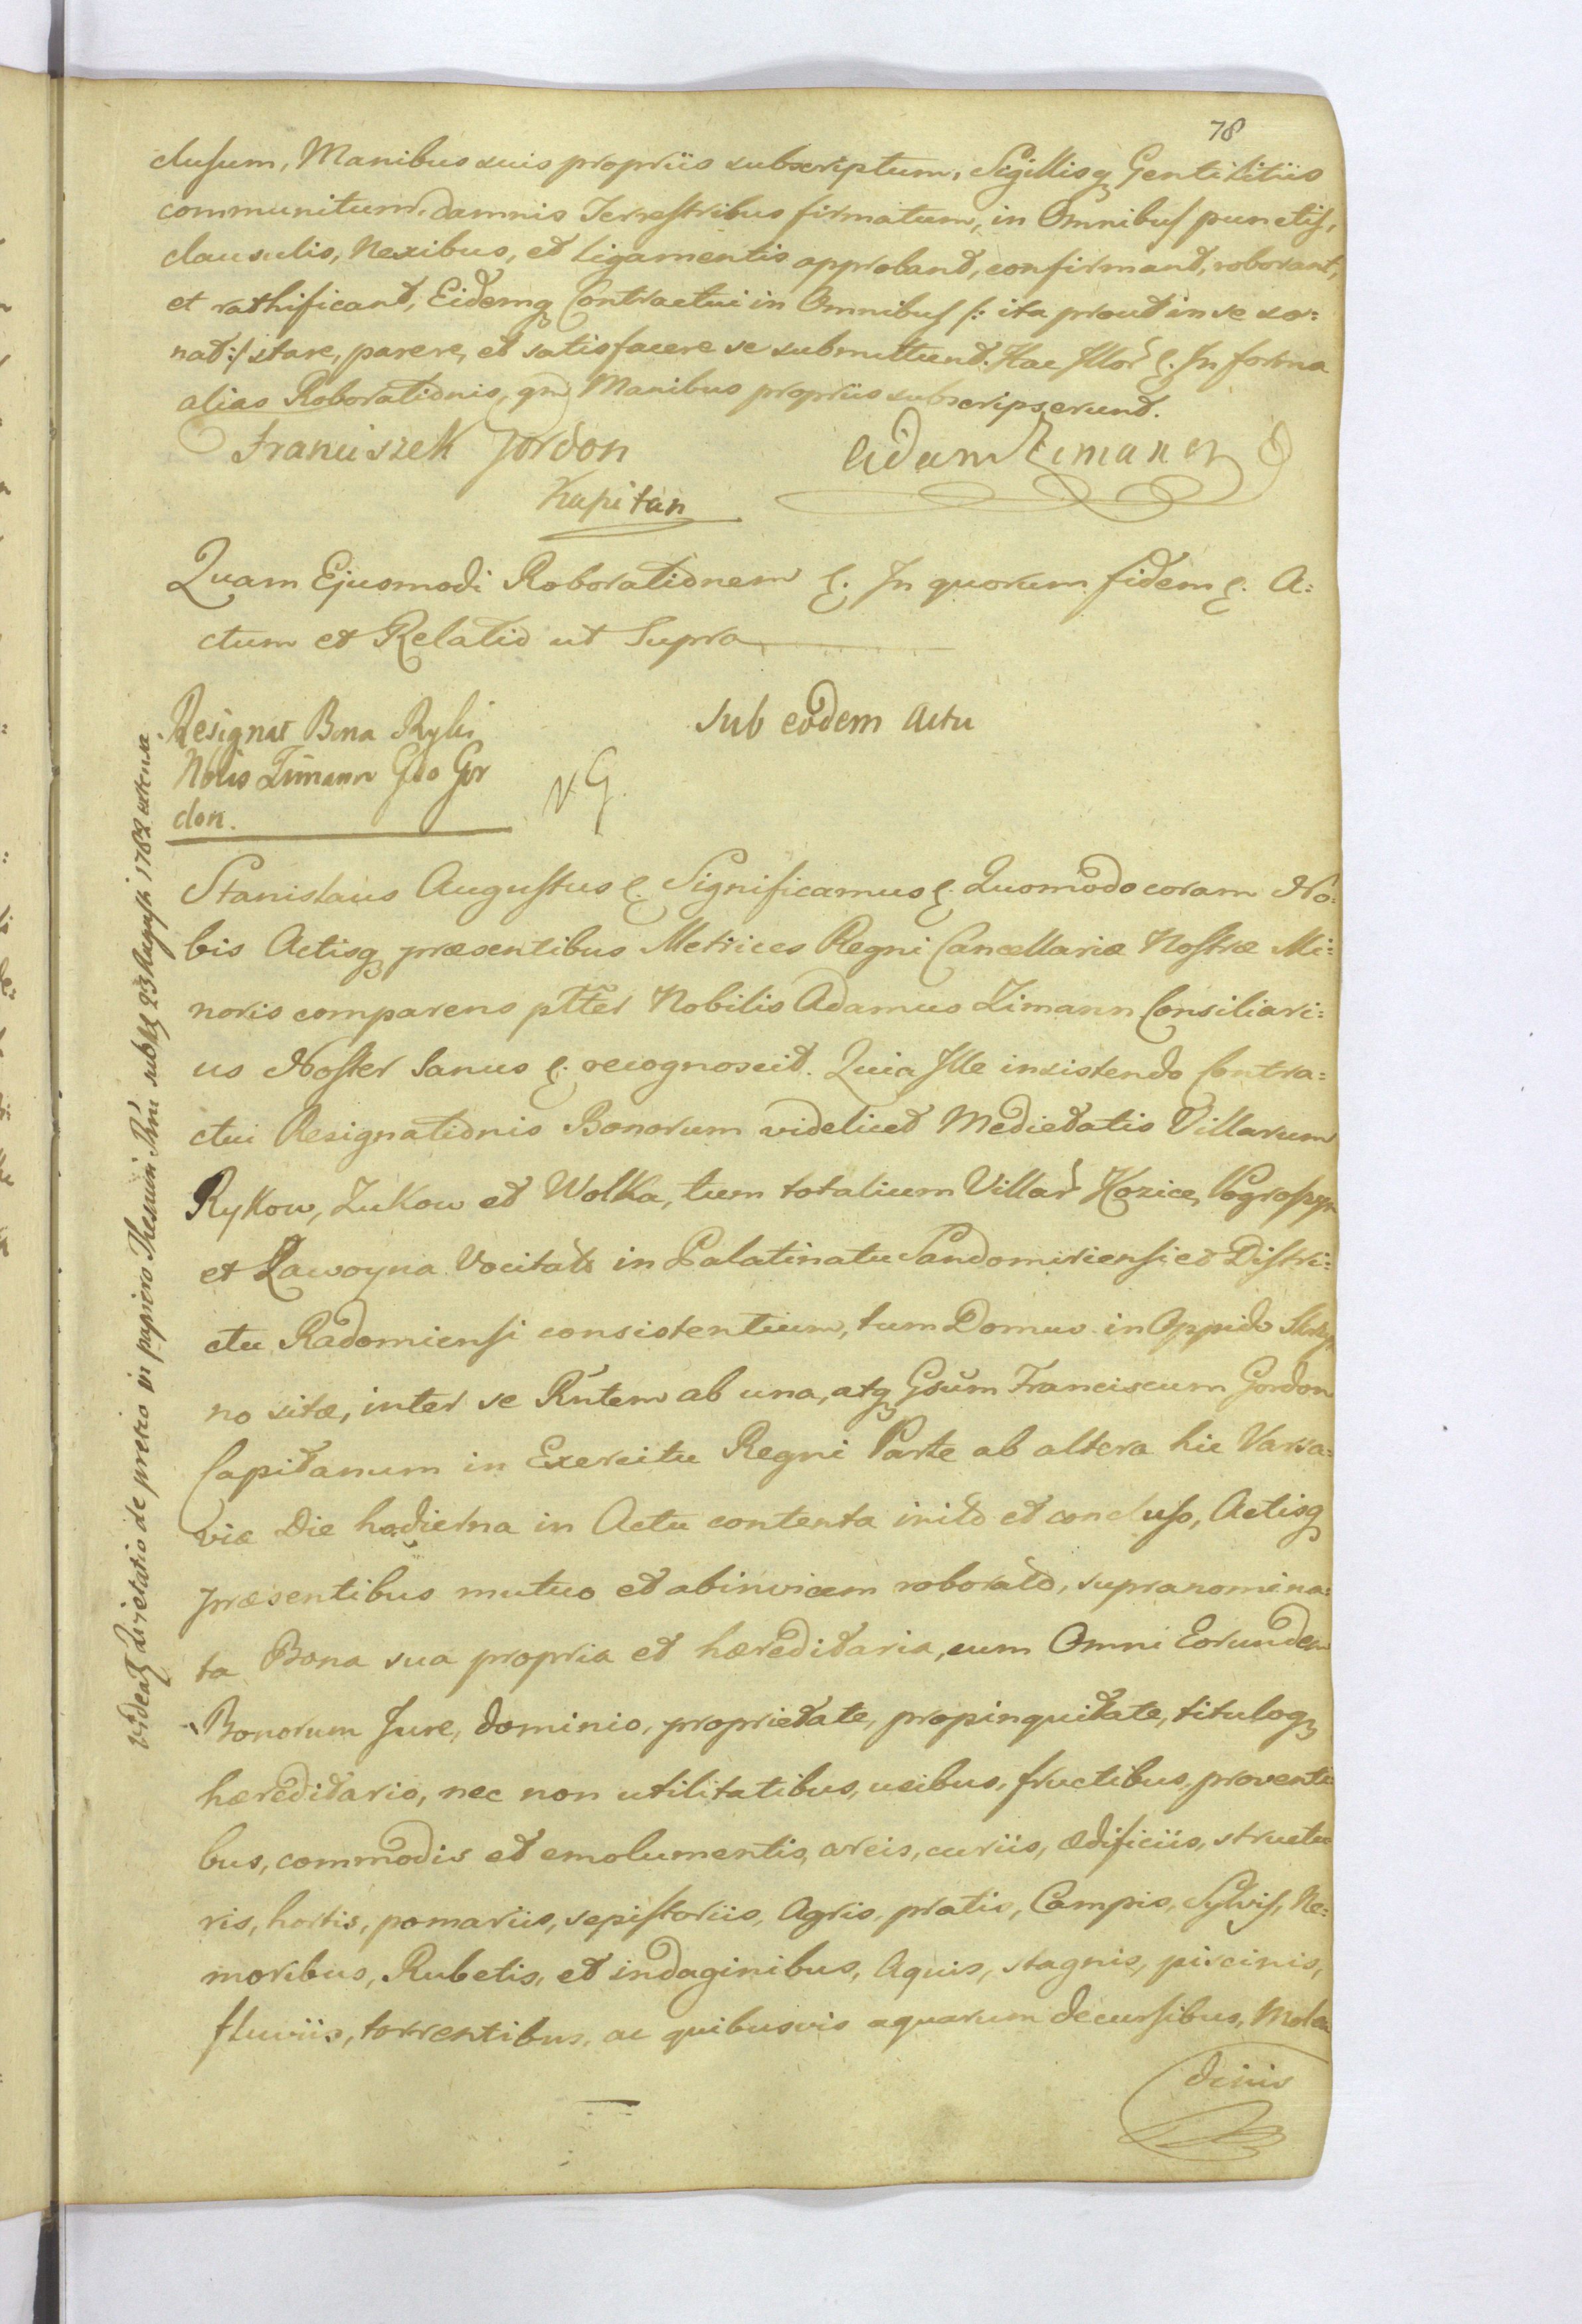 78
clusum, Manibus suis propriis subscriptum, Sigillisq Gentilitiis
communitum, damnis Terrestribus firmatum, in Omnibus punctis,
clausulis, Nexibus, et Ligamentis approband, confirmand, roborant,
et rathificant, Eidemq Contractui in Omnibus /: ita prout in se so=
nat :/ stare, parere, et satisfacere se submittunt. Hac Illor &. In forma
alias Roborationis, qm Manibus propriis subscripserunt.
Franciszek Gordon
Adam Zimann
Kapitan
Quam Ejusmodi Roborationem &. In quorum fidem &. A=
ctum et Relatio ut Supra
Sub eodem Actu
Resignat Bona
Nblis Zimann Gso Gor
don.
Stanislaus Augustus &. Significamus &. Quomodo coram No=
bis Actisq præsentibus Metrices Regni Cancellariæ Nostræ Mi=
noris comparens pltter Nobilis Adamus Zimann Consiliari=
us Noster Sanus &. recognovit. Quia Ille insistendo Contra=
ctui Resignationis Bonorum videlicet Medietatis Villarum
Rykow, Zukow et Wolka, tum totalium Villar Kozice,
et Zawoyna Vocitat in Palatinatu Sandomiriensi et Distri=
ctu Radomiensi consistentium, tum Domus in Oppido
no sitæ, inter se Rntem ab una, atq Gsum Franciscum Gordon
Capitanum in Exercitu Regni Parte ab altera hic Varsa=
viæ Die hodierna in Actu contenta inito et concluso, Actisq
præsentibus mutuo et abinvicem roborato, supranomina=
ta Bona sua propria et hæreditaria, cum Omni Eorundem
Bonorum Jure, dominio, proprietate, propinquitate, tituloq
hæreditario, nec non utilitatibus, usibus, fructibus, proventi
bus, commodis et emolumentis, areis, curiis, ædificiis, structu
ris, hortis, pomariis, sepistoriis, Agris, pratis, Campis, Sylvis, Ne=
moribus, Rubetis, et indaginibus, Aquis, stagnis, piscinis,
fluviis, torrentibus, ac quibusvis aquarum decursibus, Molen
dinis
Videatq de pretio in papiero 23 Augusti 1782 extensa